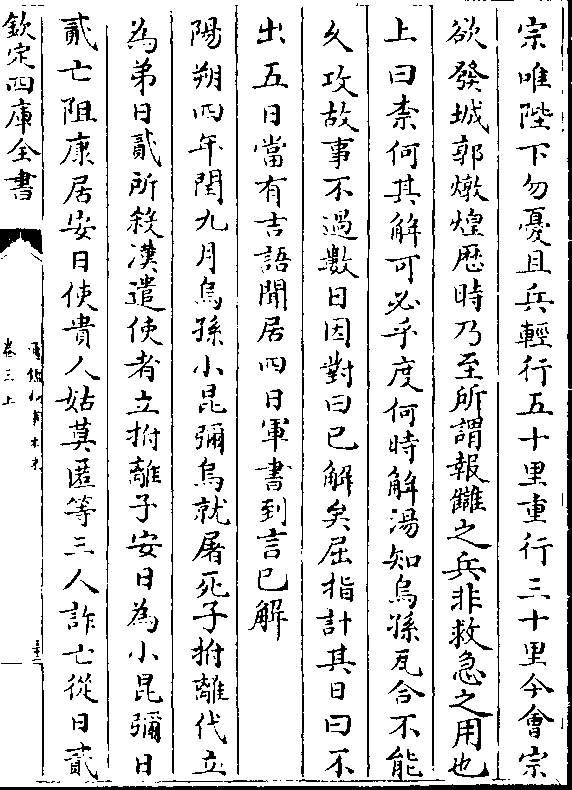 宗唯陛下勿憂且兵輕行五十里重行三十里今會宗
欲發城郭燉煌歴時乃至所謂報讎之兵非救急之用也
上曰柰何其解可必乎度何時解湯知烏孫瓦合不能
久攻故事不過數日因對曰已解矣屈指計其日曰不
出五日當有吉語聞居四日軍書到言已解
陽朔四年閏九月烏孫小昆彌烏就屠死子拊離代立
為弟日貳所殺漢遣使者立拊離子安日為小昆彌日
貳亡阻康居安日使貴人姑莫匿等三人詐亡從日貳
欽定四庫全書
通鑑紀事本末
卷三上